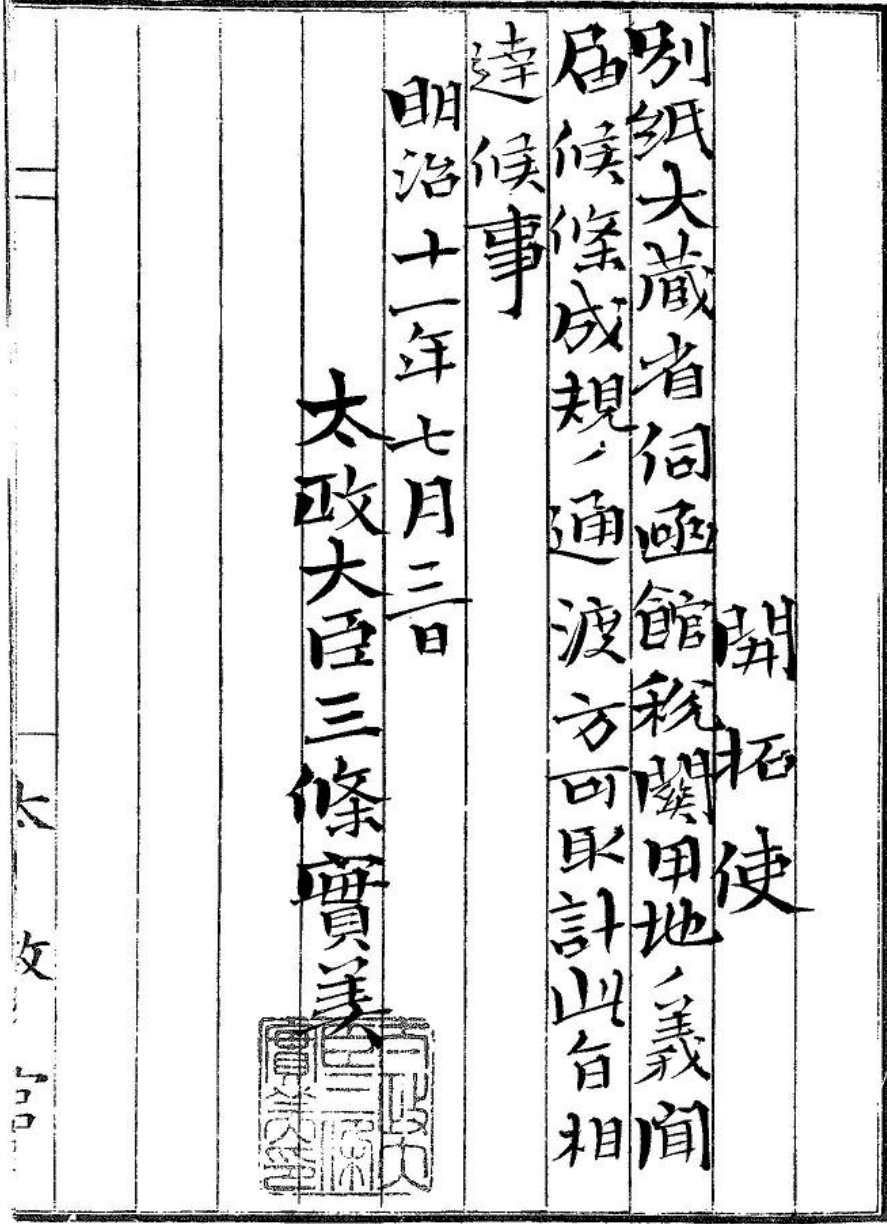 開拓使
別紙大蔵省伺函館税関用地ノ義聞
届候條成規ノ通渡方可取計此旨相
達候事
明治十一年七月三日
太政大臣三條實美
太政大
臣三條
實美印
太政官